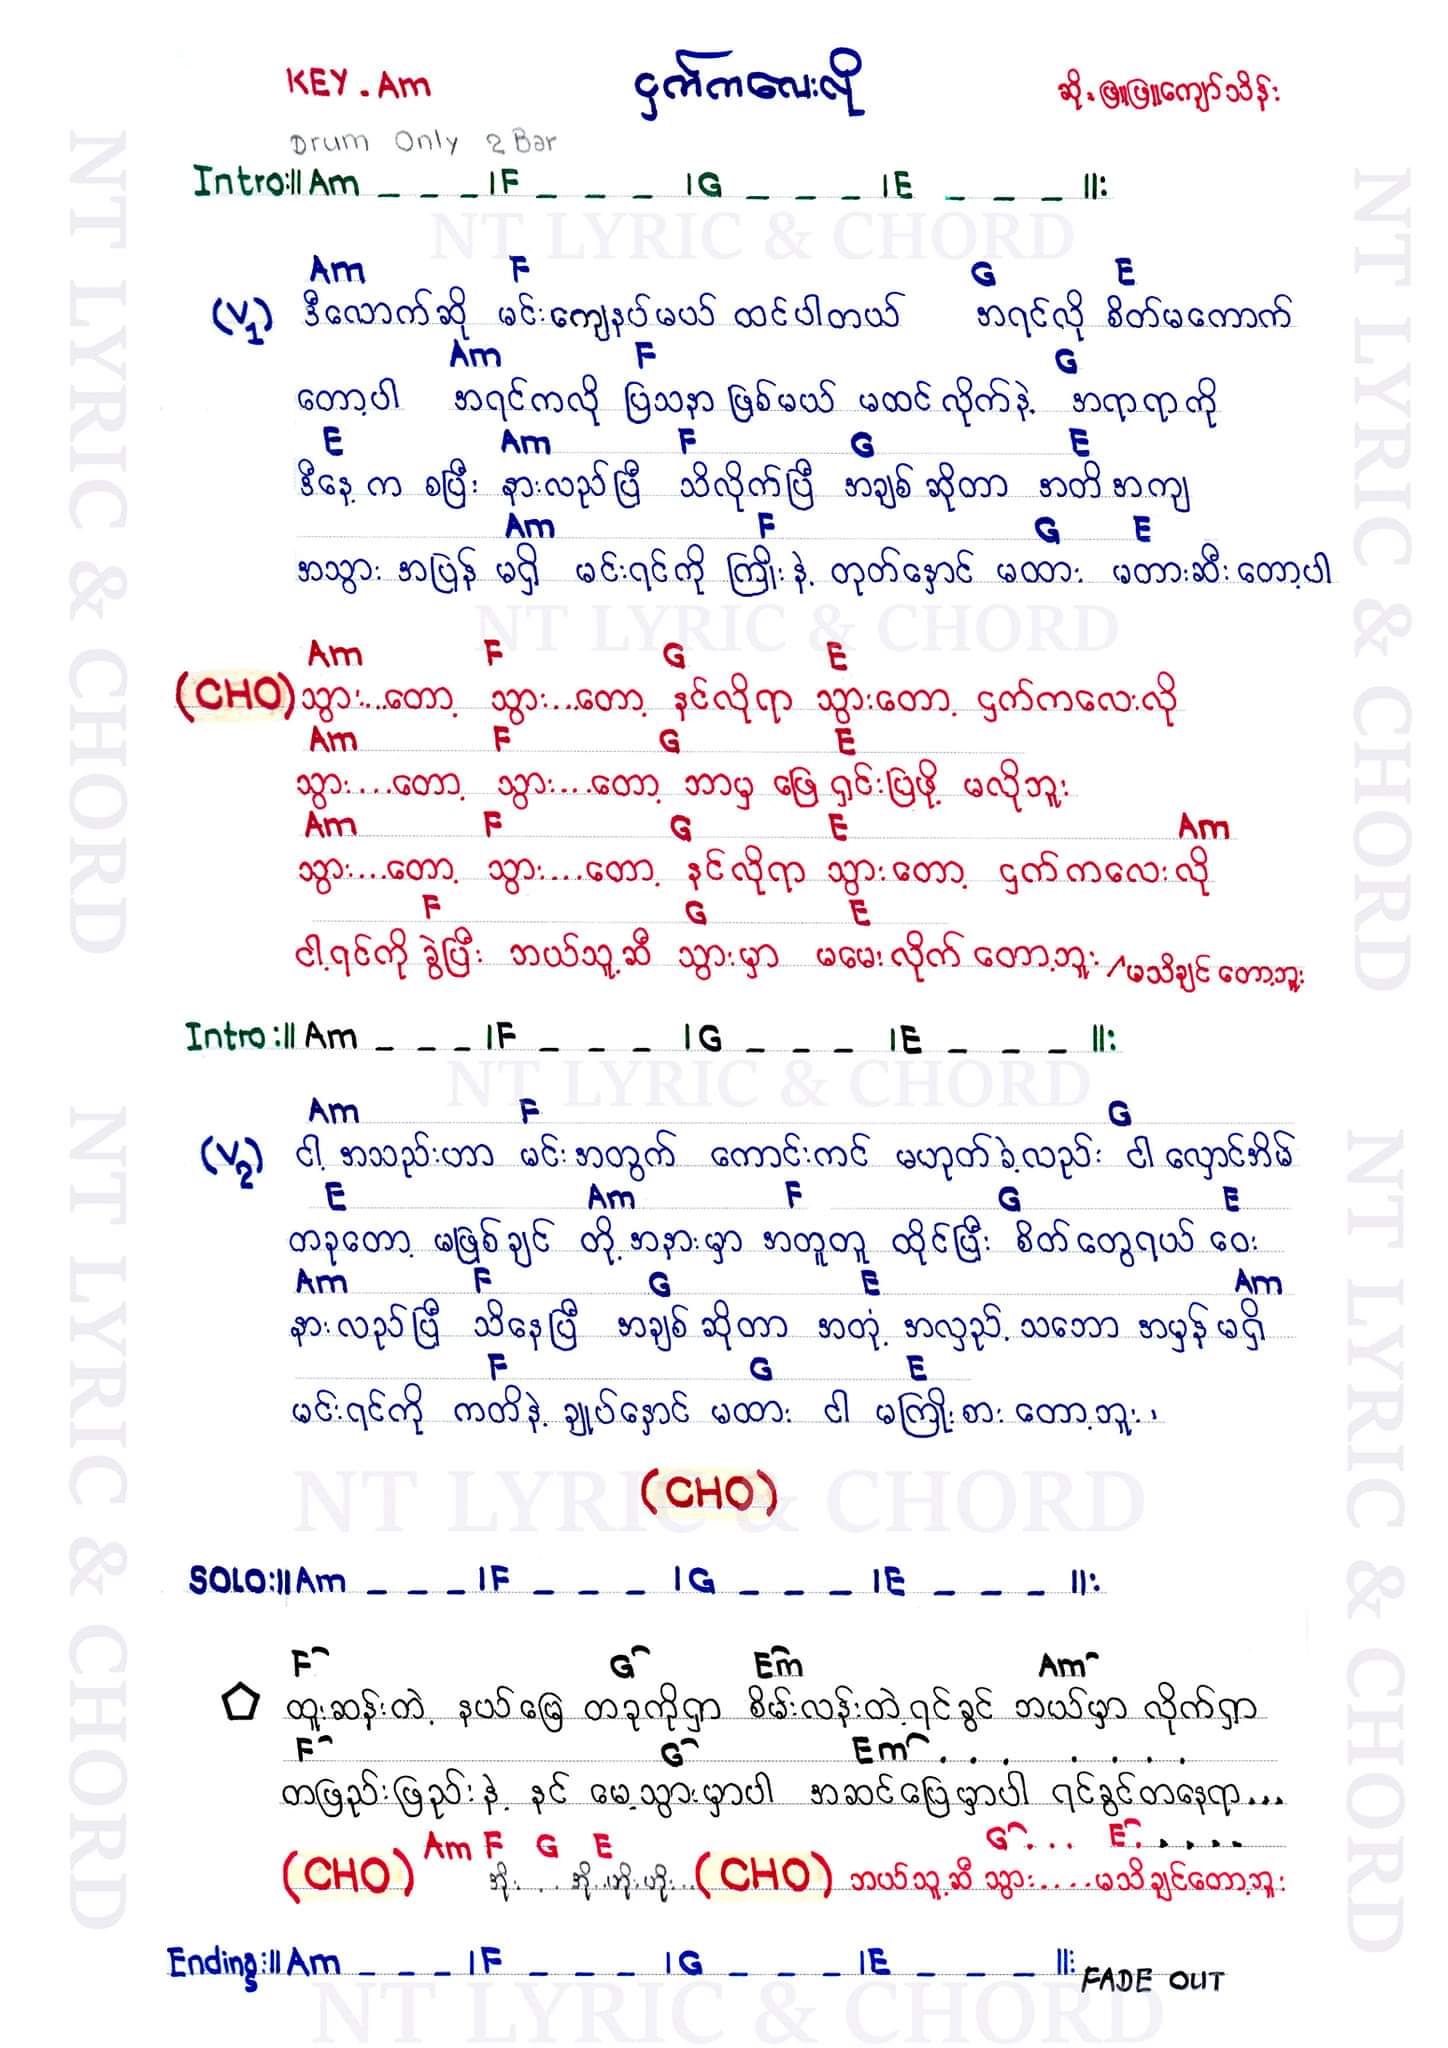 KEY . Am ငှက်ကလေးလို ဆို - ဖြူဖြူကျော်သိန်း
Drum Only 2 Bar
Intro:|| Am _ _ _ |F _ _ _ |G _ _ _ |E _ _ _ ||:
NT LYRIC & CHORD
Am F G E
(V1) ဒီလောက်ဆို မင်းကျေနပ်မယ် ထင်ပါတယ် အရင်လို စိတ်မကောက်
Am F G
တော့ပါ အရင်ကလို ပြသနာ ဖြစ်မယ် မထင်လိုက်နဲ့ အရာရာကို
E Am F G E
ဒီနေ့ က စပြီး နားလည်ပြီ သိလိုက်ပြီ အချစ်ဆိုတာ အတိအကျ
Am F G E
အသွား အပြန် မရှိ မင်းရင်ကို ကြိုးနဲ့ တုတ်နှောင် မထား မတားဆီးတော့ပါ
NT LYRIC & CHORD
Am F G E
(CHO) သွား...တော့ သွား...တော့ နင်လိုရာ သွားတော့ ငှက်ကလေးလို
Am F G E
သွား....တော့ သွား...တော့ ဘာမှ ဖြေရှင်းပြဖို့ မလိုဘူး
Am F G E Am
သွား...တော့ သွား...တော့ နင်လိုရာ သွားတော့ ငှက်ကလေးလို
F G E
ငါ့ရင်ကို ခွဲပြီး ဘယ်သူ့ဆီ သွားမှာ မမေးလိုက်တော့ဘူး / မသိချင်တော့ဘူး
Intro:|| Am _ _ _ |F _ _ _ |G _ _ _ |E _ _ _ ||:
NT LYRIC & CHORD
Am F G
(V2) ငါ့ အသည်းဟာ မင်းအတွက် ကောင်းကင် မဟုတ်ခဲ့လည်း ငါ လှောင်အိမ်
E Am F G E
တခုတော့ မဖြစ်ချင် တို့အနားမှာ အတူတူ ထိုင်ပြီး စိတ်တွေရယ် ဝေး
Am F G E Am
နားလည်ပြီ သိနေပြီ အချစ်ဆိုတာ အတုံ့ အလှည့် သဘော အမှန်မရှိ
F G E
မင်းရင်ကို ကတိနဲ့ ချုပ်နှောင် မထား ငါ မကြိုးစား တော့ဘူး ၊
(CHO)
NT LYRIC & CHORD
SOLO:|| Am _ _ _ |F _ _ _ |G _ _ _ |E _ _ _ ||:
F^ G^ Em^ Am^
ထူးဆန်းတဲ့ နယ်မြေ တခုကိုရှာ စိမ်းလန်းတဲ့ရင်ခွင် ဘယ်မှာ လိုက်ရှာ
F^ G^ Em^ . . . . . . .
တဖြည်းဖြည်းနဲ့ နင် မေ့သွားမှာပါ အဆင်ပြေမှာပါ ရင်ခွင်တနေရာ...
Am F G E G^. . . E^. . . . .
(CHO) အိုး. . . အို..ဟိုးဟိုး.. (CHO) ဘယ်သူ့ဆီ သွား....မသိချင်တော့ဘူး
Ending:|| Am _ _ _ |F _ _ _ |G _ _ _ |E _ _ _ ||: FADE OUT
NT LYRIC & CHORD
NT LYRIC & CHORD
NT LYRIC & CHORD
NT LYRIC & CHORD
NT LYRIC & CHORD